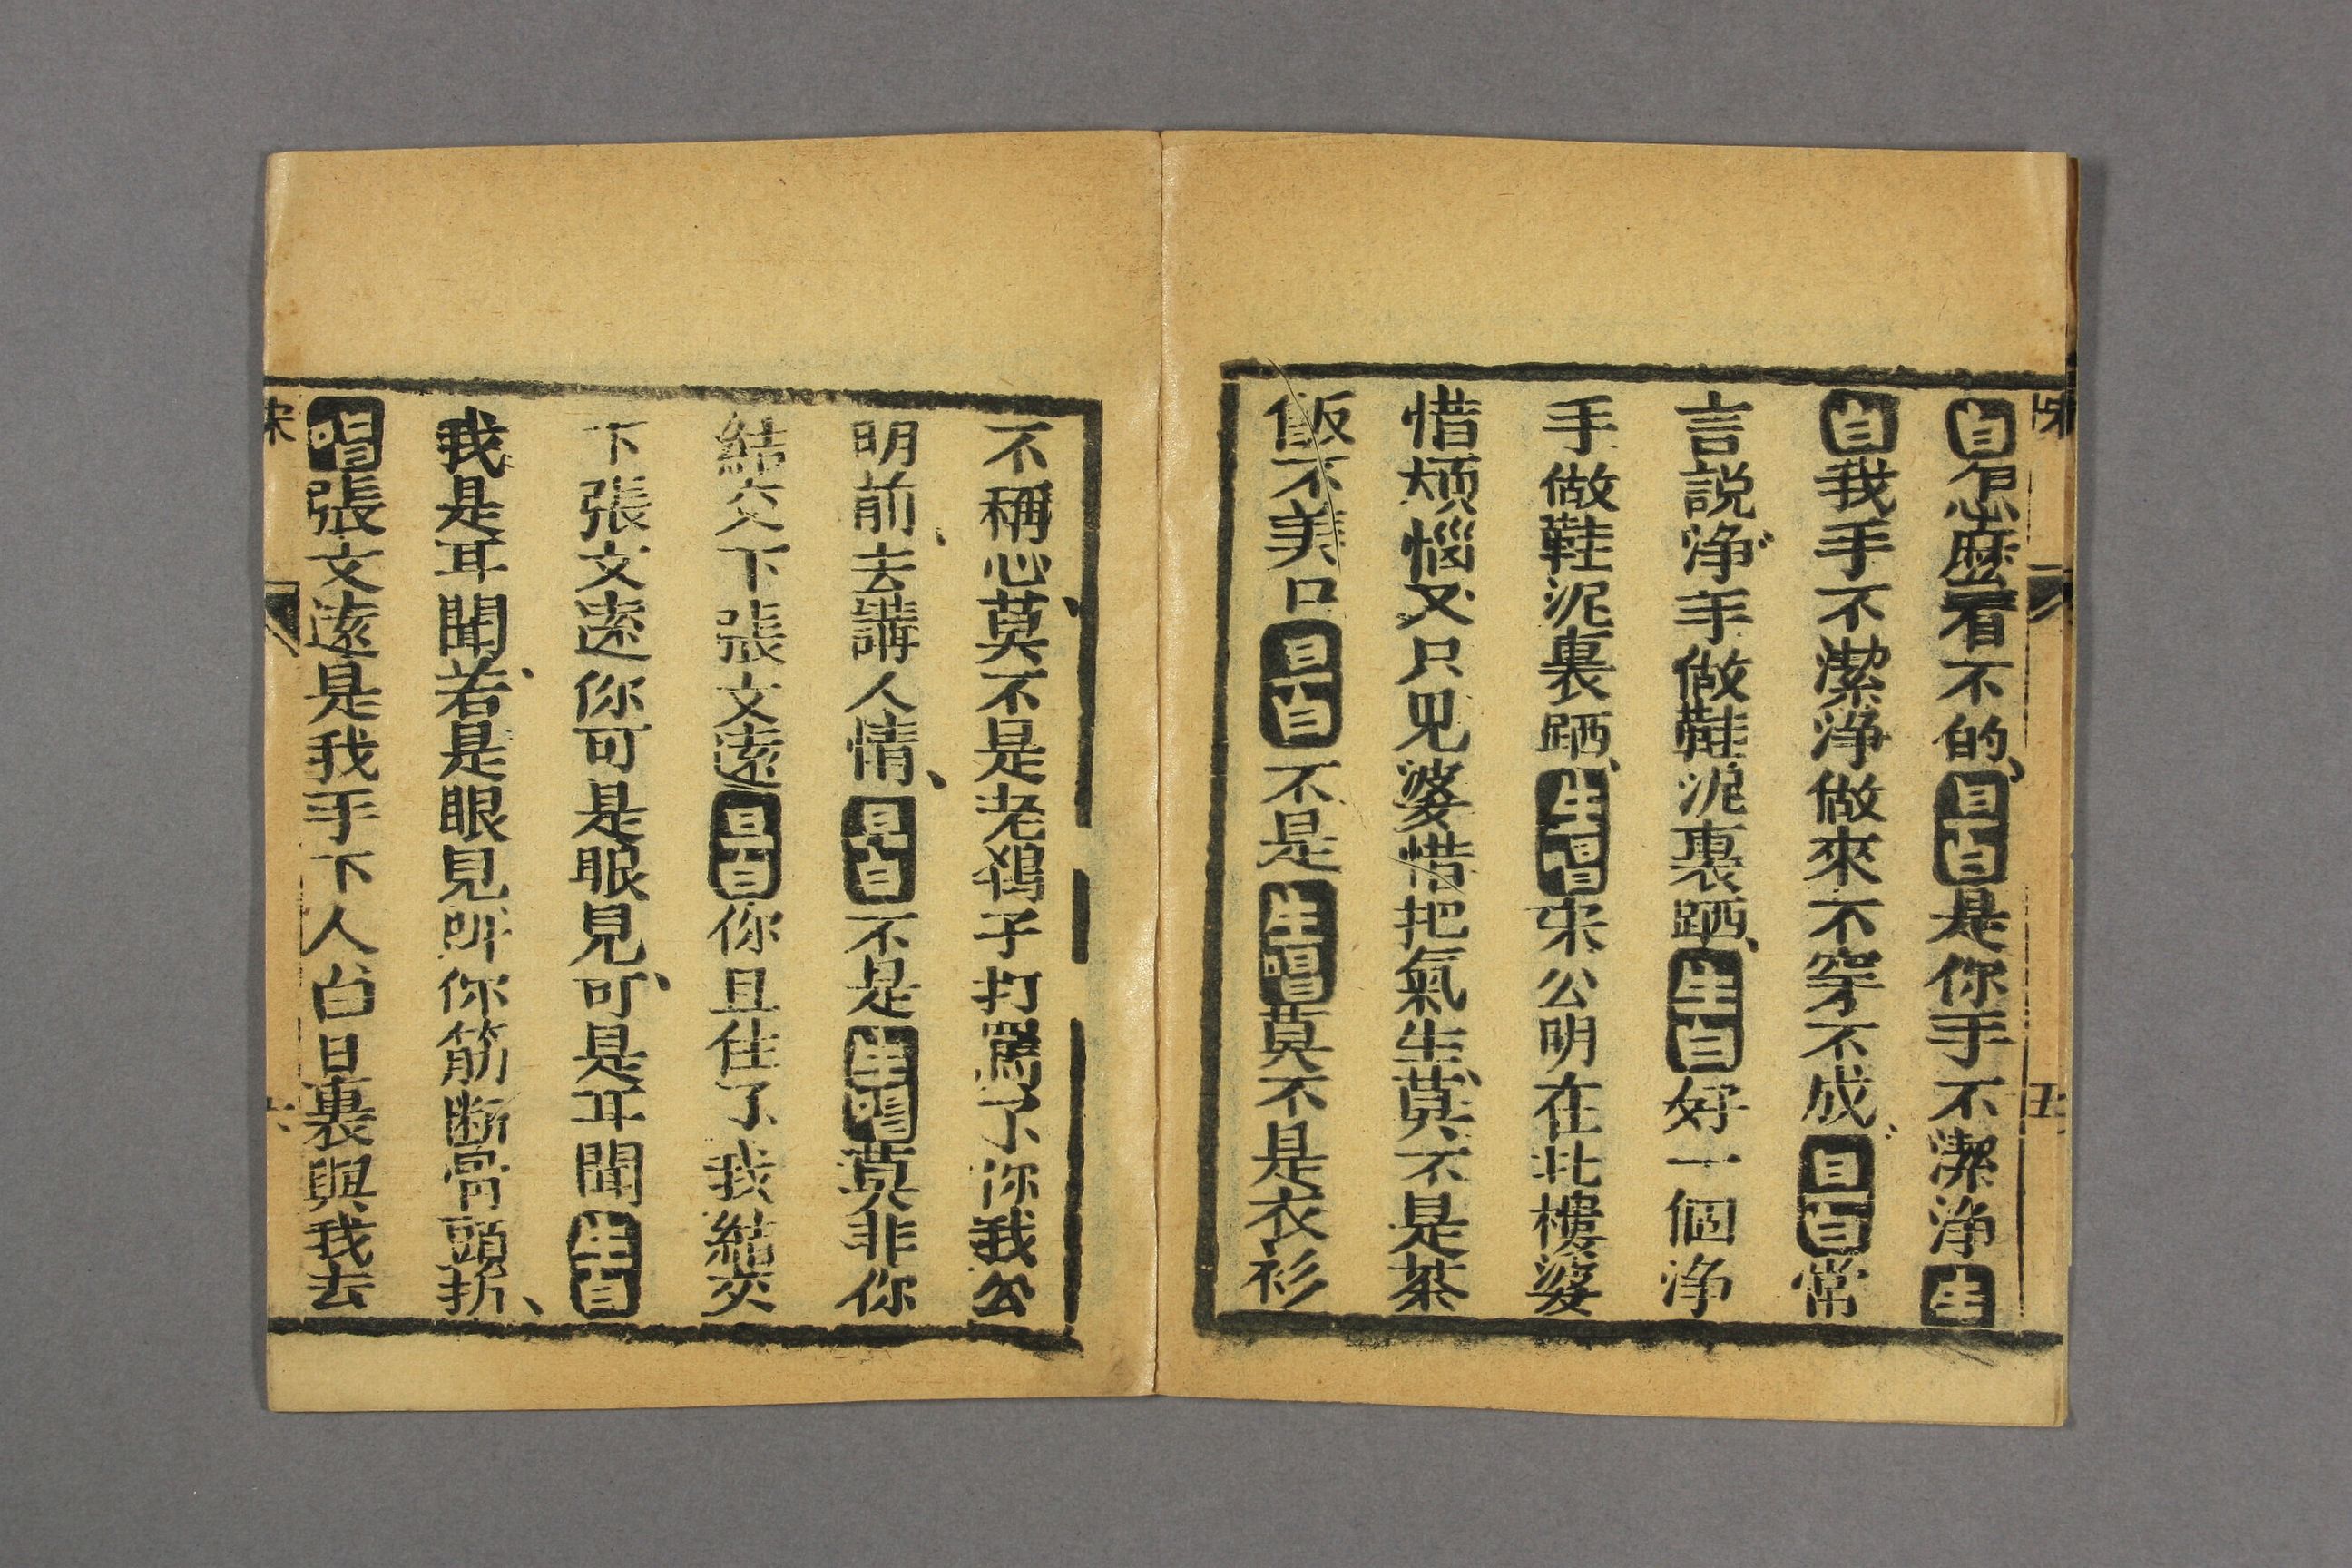 白怎麽看不的旦白是你手不潔浄生
白我手不潔浄做來不穿不成旦白常
言説浄手做鞋泥裏跴生白好一個浄
手做鞋泥裏跴生唱宋公明在北樓婆
惜煩惱又只見婆惜把氣生莫不是茶
飯不美口旦白不是生唱莫不是衣衫
不稱心莫不是老鴇子打罵了你我公
明前去講人情旦白不是生唱莫非你
結交下張文遠旦白你且住了我結交
下張文遠你可是眼見可是耳聞生白
我是耳聞若是眼見呌你筋断骨頭折
唱張文遠是我手下人白日裏與我去